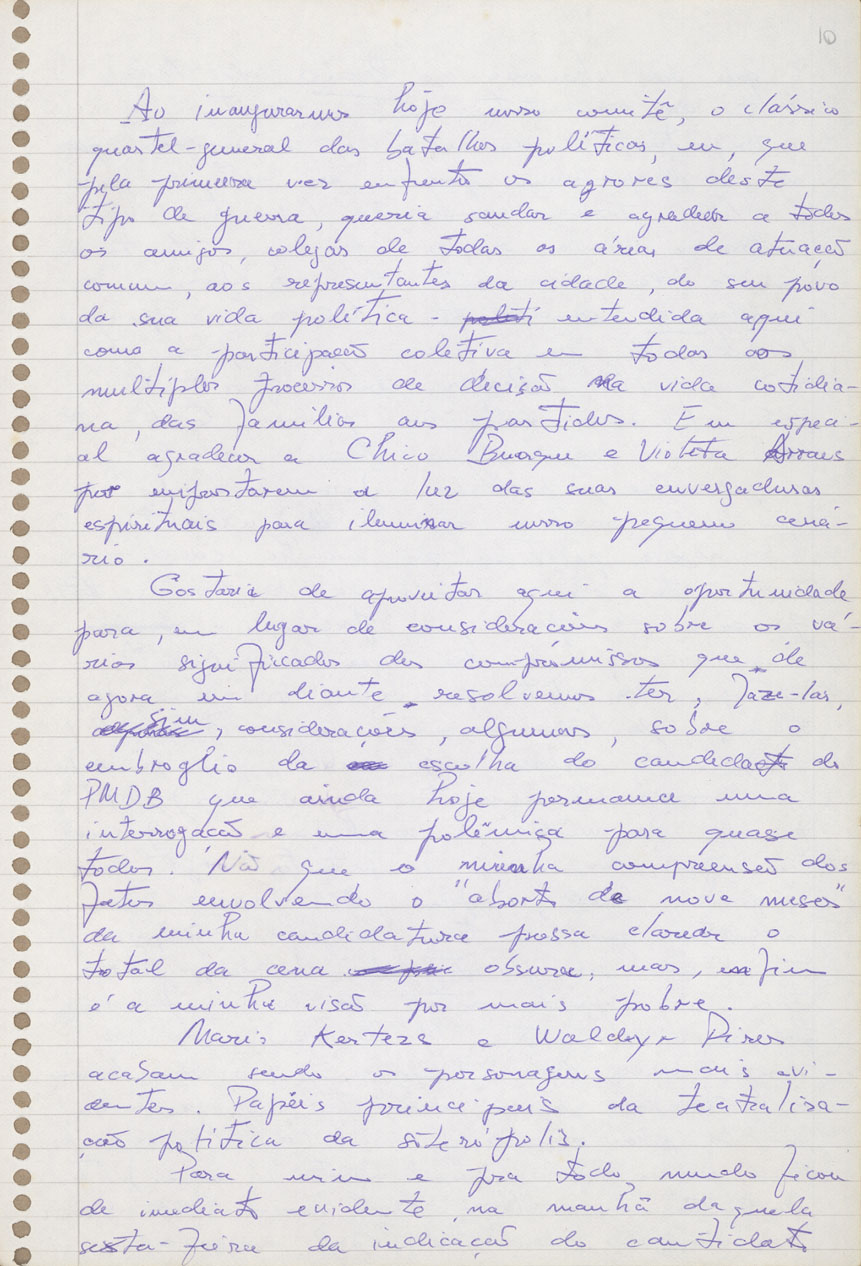 10
Ao inaugurarmos hoje nosso comitê, o clássico
quartel-general das batalhas políticas, eu, que
pela primeira vez enfrento os agrores deste
tipo de guerra, queria saudar e agradecer a todos
os amigos, colegas de todas as áreas de atuação
comum, aos representantes da cidade, do seu povo
da sua vida política - entendida aqui
como a participação coletiva em todos os
multiplos processos de decisão na vida cotidia-
na, das famílias aos partidos. Em especi-
al agradecer a Chico Buarque e Violeta Arraes
por emprestarem a luz das suas envergaduras
espirituais para iluminar nosso pequeno cená-
rio.
Gostaria de aproveitar aqui a oportunidade
para, em lugar de considerações sobre os vá-
rios significados dos comprômissos que de
agora em diante resolvemos ter, faze-las,
sim, considerações, algumas, sobre o
embroglio da escolha do candidato do
PMDB que ainda hoje permanece uma
interrogação e uma polêmica para quase
todos. Não que a minha compreensão dos
fatos envolvendo o "aborto de nove meses"
da minha candidatura possa clarear o
total da cena obscura, mas, enfim
é a minha visão por mais pobre.
Mario Kertezs e Waldyr Pires
acabam sendo os personagens mais evi-
dentes. Papéis principais da teatraliza-
ção política da soterópolis.
Para mim e pra todo mundo ficou
de imediato evidente na manhã daquela
sexta-feira da indicação do cantidato